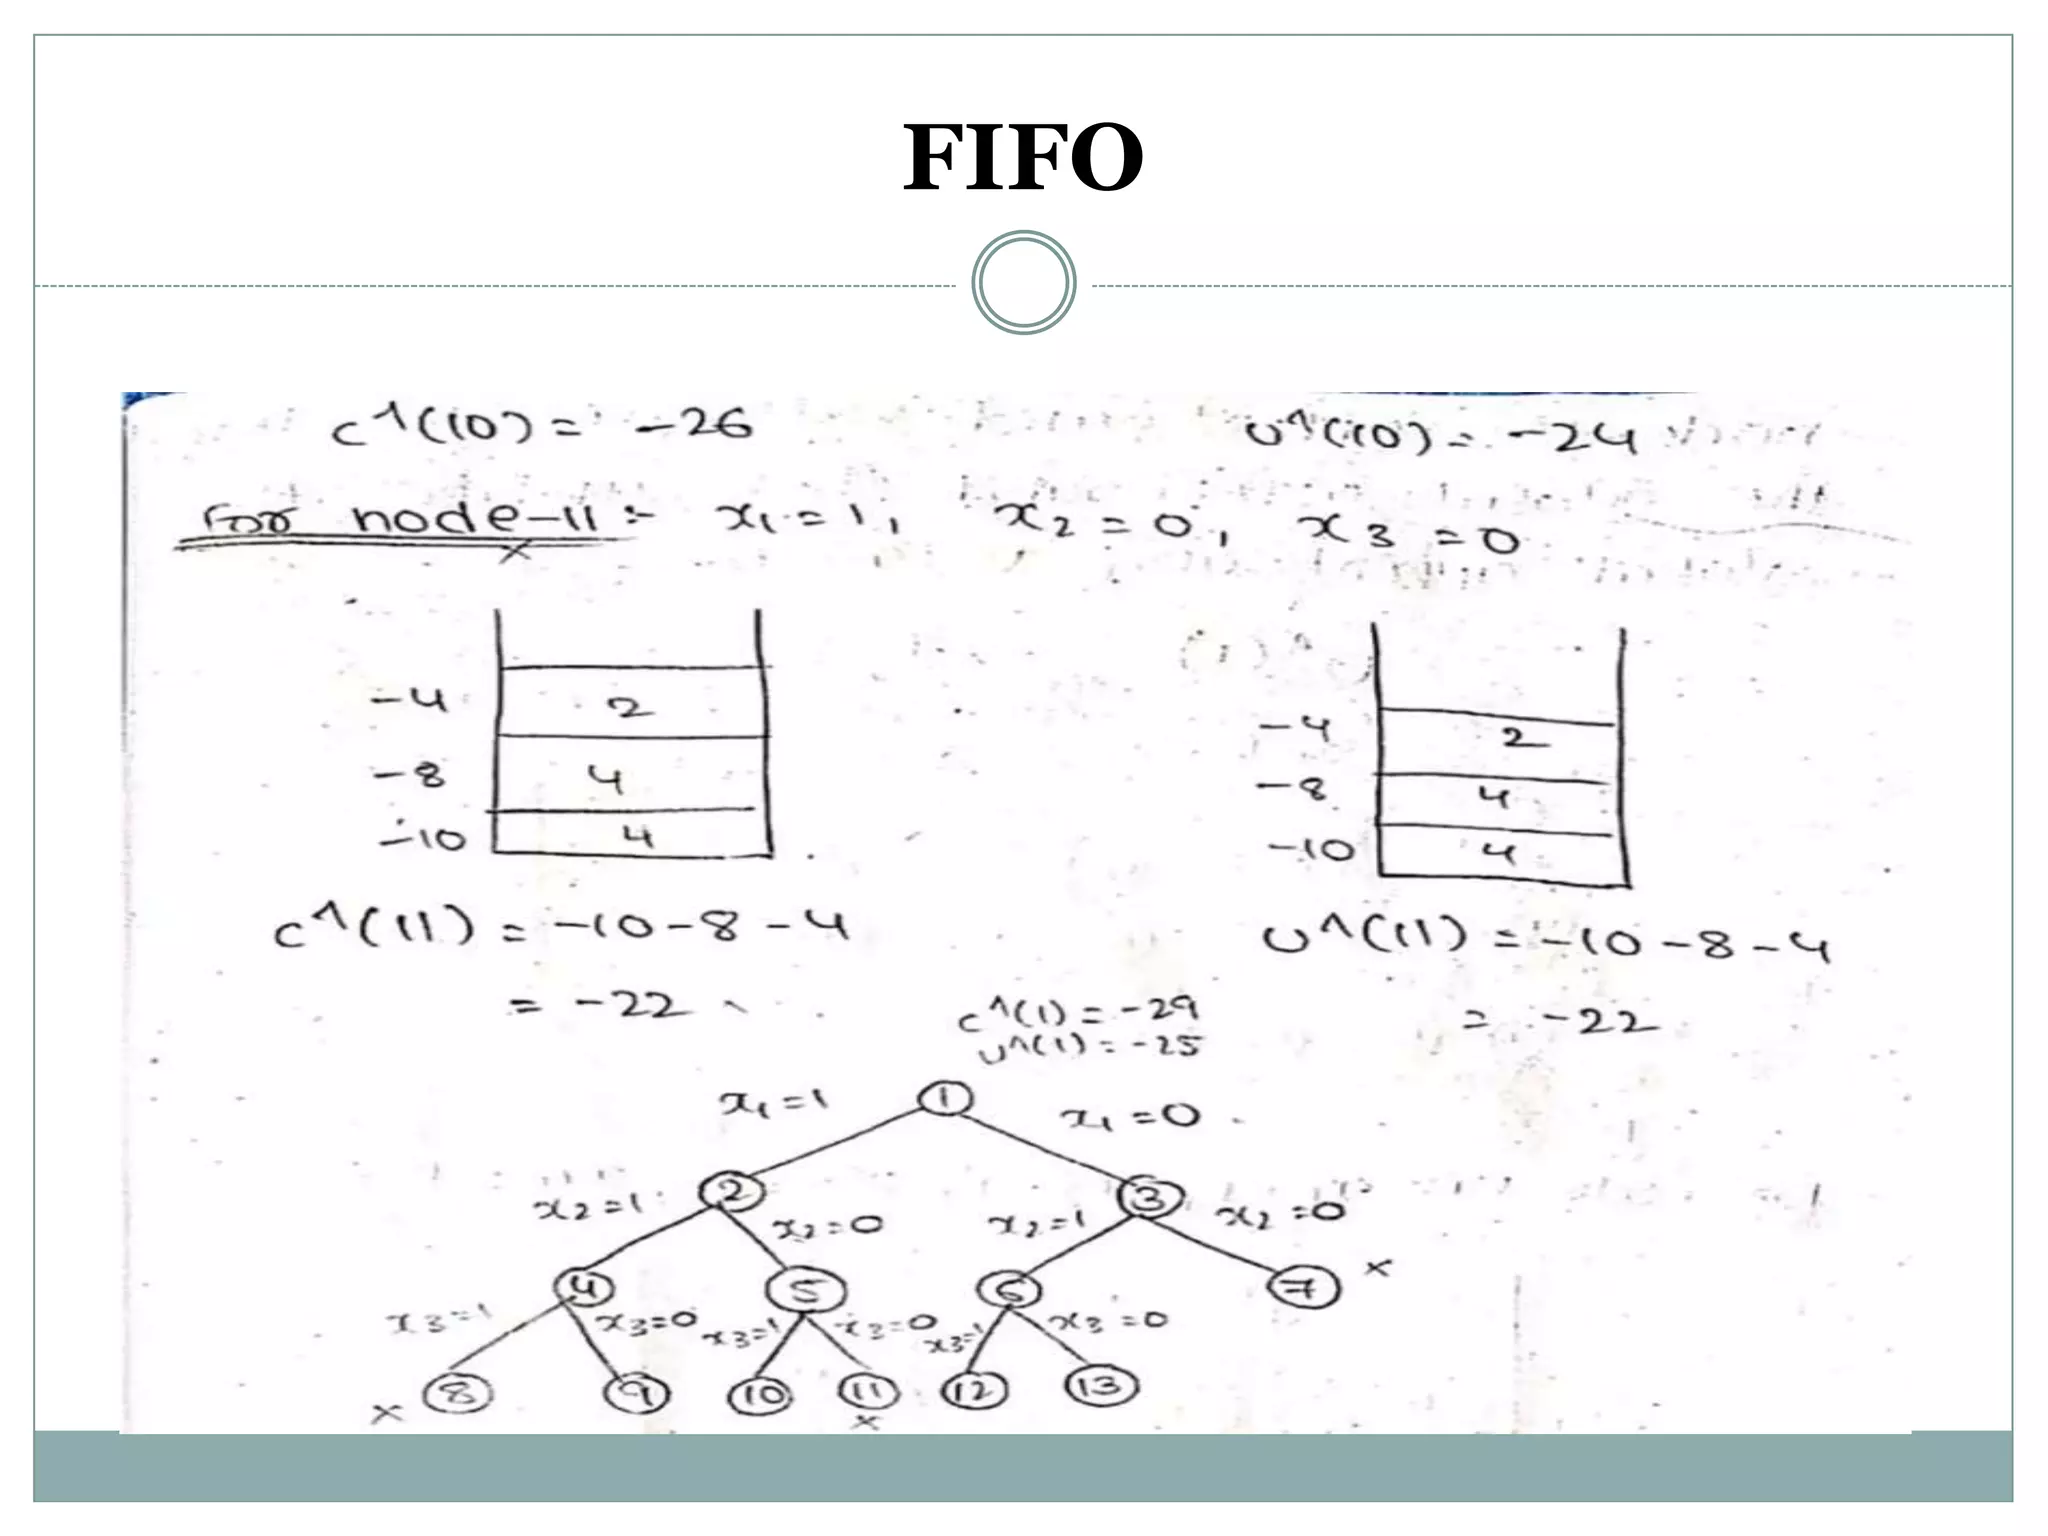 FIFO
c^(10) = -26 u^(10) = -24
For node-11 :- x1 = 1, x2 = 0, x3 = 0
-4 2 -4 2
-8 4 -8 4
-10 4 -10 4
c^(11) = -10-8-4 u^(11) = -10-8-4
= -22 = -22
c^(1) = -29
u^(1) = -25
x1=1 1 x1=0
x2=1 2 x2=0 x2=1 3 x2=0
4 5 6 7 x
x3=1 x3=0 x3=1 x3=0 x3=1 x3=0
x 8 9 10 11 12 13
x